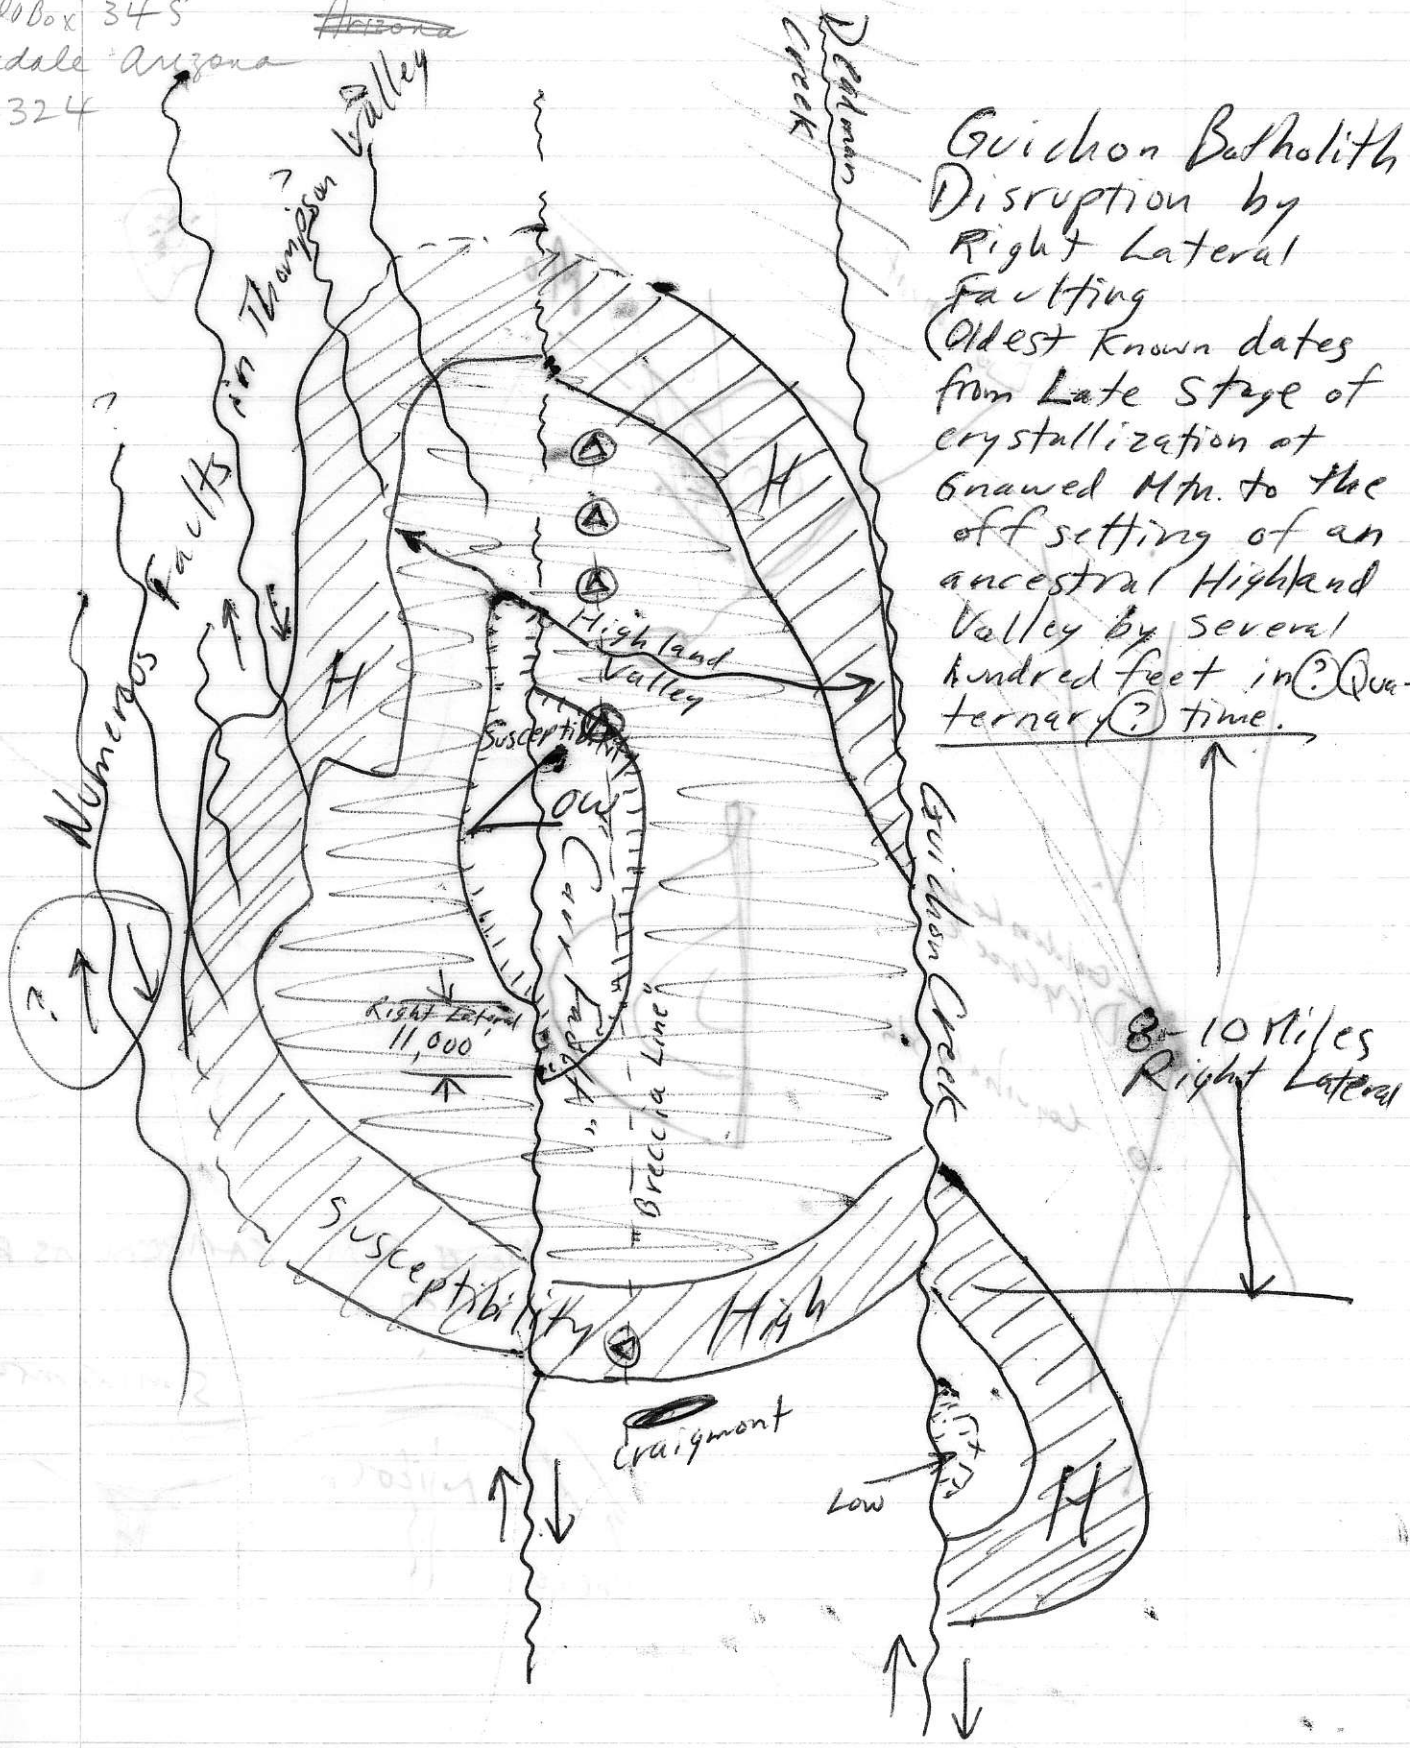 PO Box 345
Arizona
dale Arizona
324
Deadman
Creek
Valley
?
in Thompson
?
Numerous Faults
Guichon Batholith
Disruption by
Right Lateral
Faulting
(Oldest Known dates
from Late Stage of
crystallization at
Gnawed Mtn. to the
off setting of an
ancestral Highland
Valley by several
hundred feet in ? Qua-
ternary ? time.
H
H
Highland
Valley
Susceptibility
Low
"Carr Fault"
Guichon Creek
?
Right Lateral
11,000'
"Breccia Line"
8-10 Miles
Right Lateral
Susceptibility
High
Craigmont
Low
H